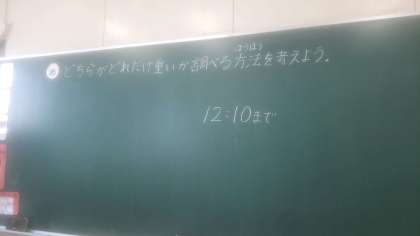 め どちらがどれだけ重いか調べる方法を考えよう。
ほうほう
12:10まで